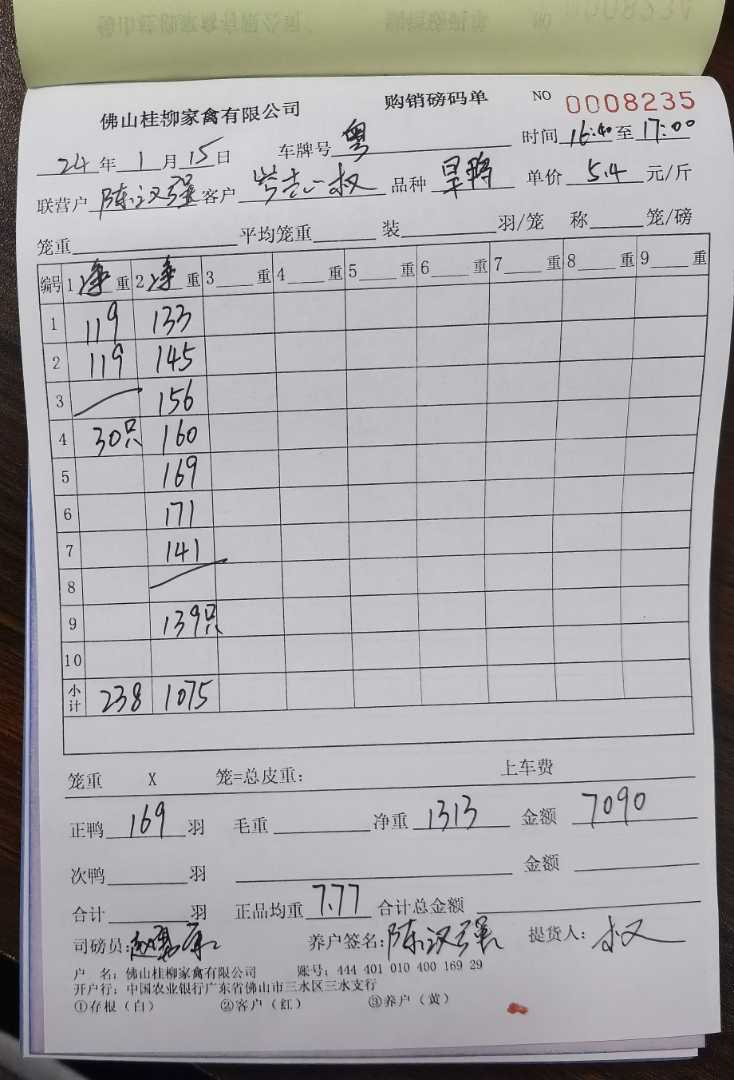 佛山桂柳家禽有限公司 购销磅码单 NO 0008235
24年1月15日 车牌号 粤 时间16:40至17:00
联营户 陈汉强 客户 一叔 品种 旱鸭 单价 5.4 元/斤
笼重 平均笼重 装 羽/笼 称 笼/磅
编号 1净重 2净重 3 重 4 重 5 重 6 重 7 重 8 重 9 重
1 119 133
2 119 145
3 156
4 30只 160
5 169
6 171
7 141
8
9 139只
10
小计 238 1075
笼重 X 笼=总皮重: 上车费
正鸭 169 羽 毛重 净重 1313 金额 7090
次鸭 羽 金额
合计 羽 正品均重 7.77 合计总金额
司磅员: 养户签名: 陈汉强 提货人: 叔
户 名: 佛山桂柳家禽有限公司 账号: 444 401 010 400 169 29
开户行: 中国农业银行广东省佛山市三水区三水支行
①存根(白) ②客户(红) ③养户(黄)